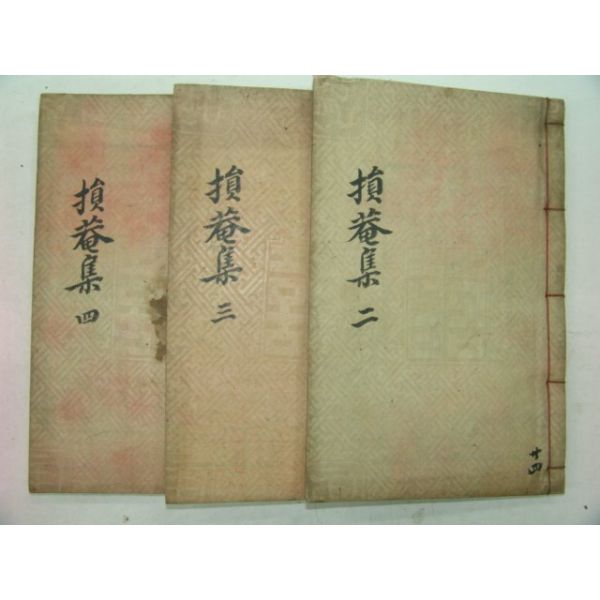 損菴集 二
共四
損菴集 三
損菴集 四